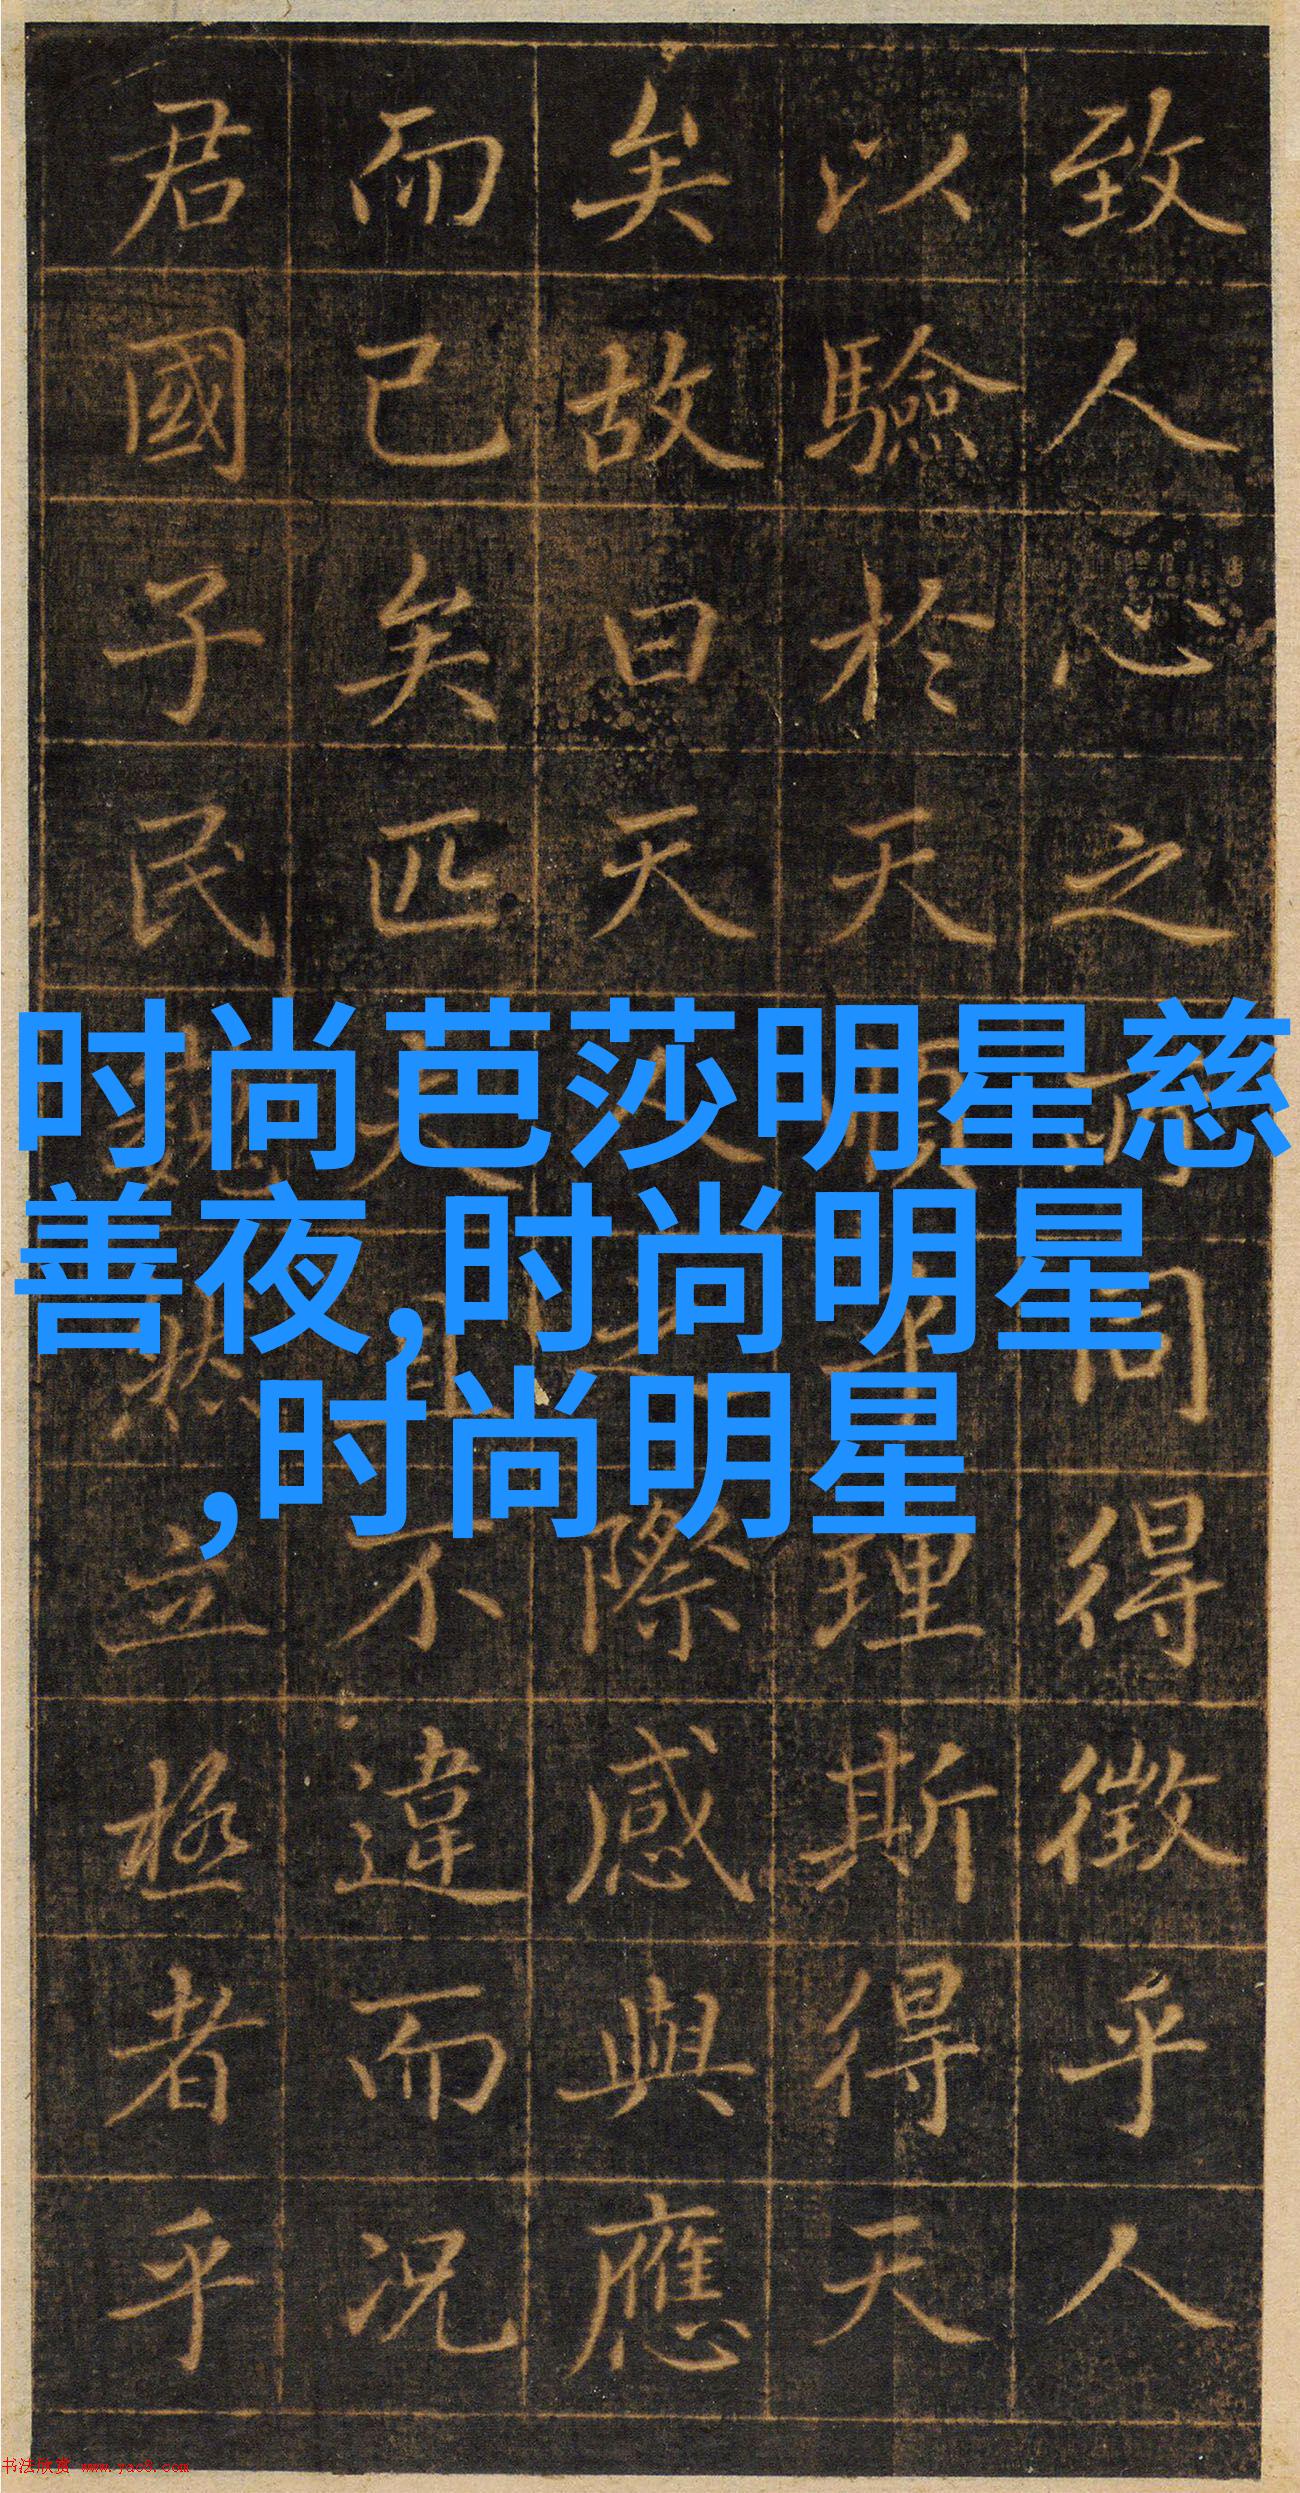 致人心之同得徵乎人
以驗於天順乎理斯得天
矣故曰天人之際感與應
而已矣匹夫且不違而況
君國子民然立極者乎
时尚芭莎明星慈
善夜,时尚明星
,时尚明星
书法欣赏 www.yac8.com